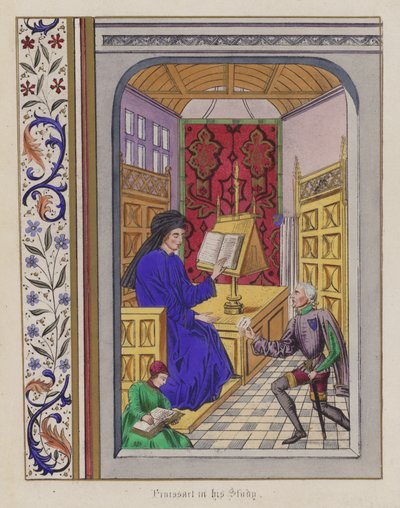 Froissart in his Study.